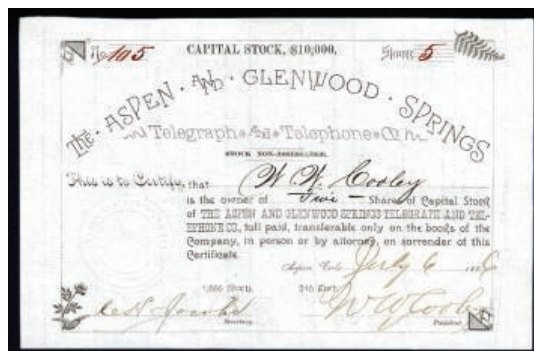 No 105 CAPITAL STOCK, $10,000. Shares 5
The · ASPEN · AND · GLENWOOD · SPRINGS
Telegraph And Telephone Co
STOCK NON-ASSESSABLE.
This is to Certify, that W. W. Cooley
is the owner of Shares of Capital Stock
of THE ASPEN AND GLENWOOD SPRINGS TELEGRAPH AND TEL-
EPHONE CO., full paid, transferable only on the books of the
Company, in person or by attorney, on surrender of this
Certificate.
Aspen, Colo. July 6 1886
W W Cooley
Secretary. President.